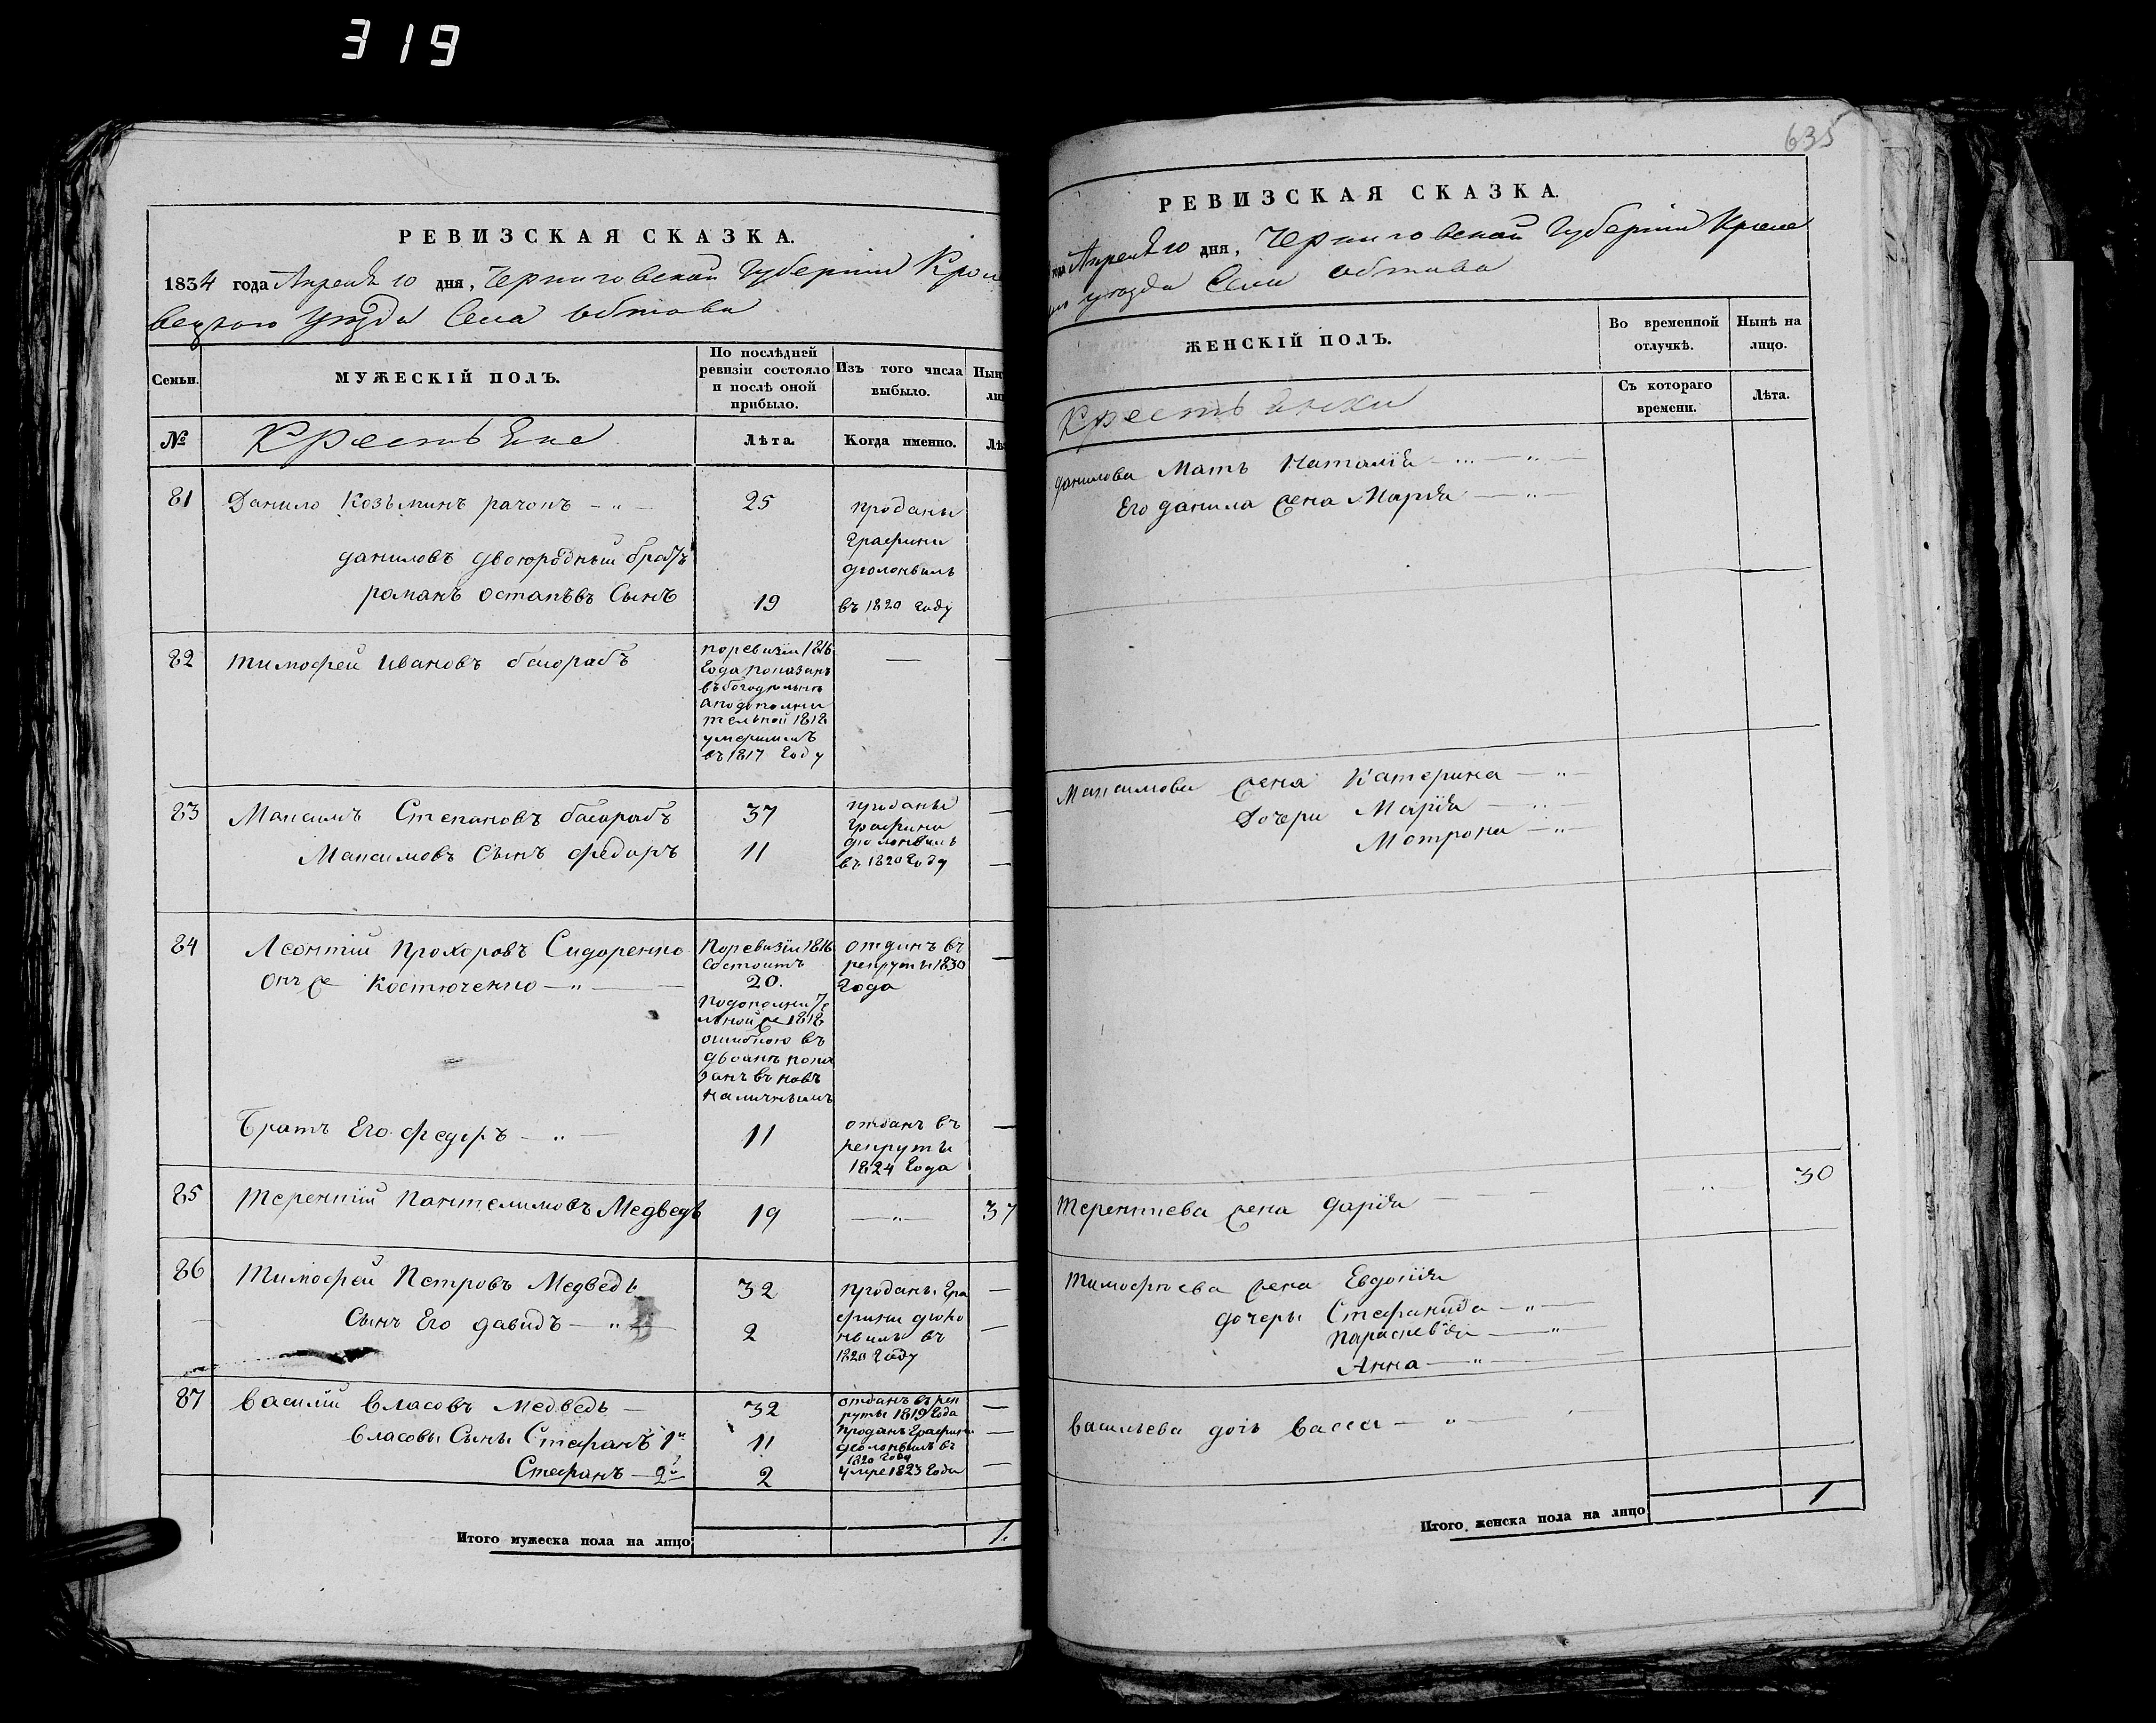 319
РЕВИЗСКАЯ СКАЗКА.
1834 года Апреля 10 дня, Черниговской Губернии Кроле
вецкого уезда Села обтова
Семьи.
МУЖЕСКІЙ ПОЛЪ.
По послѣдней ревизіи состояло и послѣ оной прибыло.
Изъ того числа выбыло.
№
Крестьяне
Лѣта.
Когда именно.
81 Данило Козьминъ 25 проданы
Графини
даниловъ двоюродный братъ
романъ остапъвъ Сынъ 19 въ 1820 году
82 тимофей Ивановъ
поревизіи 1816
года показанъ
аподополни
тельной 1818
умершимъ
въ 1817 году
83 Максимъ Степановъ 37 проданы
Графини
Максимовъ Сынъ федоръ 11 въ 1820 Году
84 Леонтій Прохоровъ Сидоренко
Поревизіи 1816
состоитъ
20.
отданъ въ
рекруты 1830
Года
онъ же Костюченко
Подополните
льной же 1818
ошибкою въ
двоинъ пока
занъ въ новъ
наличнымъ
Братъ Его федоръ 11 отданъ въ
рекруты
1824 Года
85 терентій Пантелимовъ Медведь 19 37
86 Тимофей Петровъ Медведь 32 проданы Гра
фини
Сынъ Его давидъ 2 въ
1820 Году
87 василій власовъ Медведь 32 отданъ в рек
руты 1819 Года
власовы Сыны Стефанъ 1й 11 проданъ Графини
1820 Году
Стефанъ 2й 2 умре 1823 Года
Итого мужеска пола на лицо 1.
635
РЕВИЗСКАЯ СКАЗКА.
года Апреля 10 дня, Черниговской Губерніи Кроле
уезда Села обтова
ЖЕНСКІЙ ПОЛЪ.
Во временной отлучкѣ.
Нынѣ на лицо.
Крестьянки
Съ котораго времени.
Лѣта.
данилова Мать Наталія
Его данила жена Марія
Максимова жена Катерина
Дочери Марія
Мотрона
терентиева жена дарія 30
тимофеева жена Евдокія
дочеры Стефанида
параскевія
Анна
васильева дочь васса
Итого женска пола на лицо 1